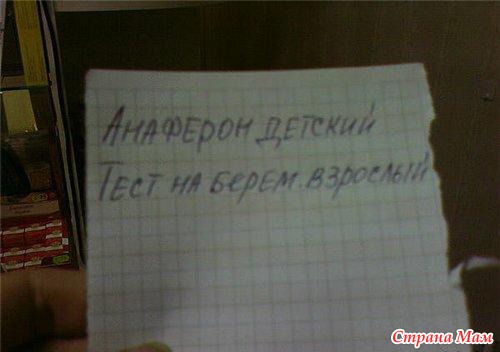 Анаферон детский
Тест на берем. взрослый
Страна Мам